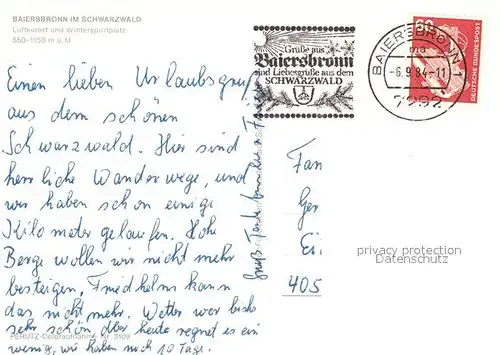 BAIERSBRONN IM SCHWARZWALD
Luftkurort und Wintersportplatz
550-1150 m ü. M
Einen lieben Urlaubsgruß
aus dem schönen
Schwarzwald. Hier sind
herrliche Wanderwege, und
wir haben schon einige
Kilometer gelaufen. Hohe
Berge wollen wir nicht mehr
besteigen, Friedhelm kann
das nicht mehr. Wetter war bisher
sehr schön, aber heute regnet es ein
wenig, wir haben noch 10 Tage.
PERUTZ-Coloraufnahme Nr. 3109
Grüße aus
Baiersbronn
sind Liebesgrüße aus dem
SCHWARZWALD
BAIERSBRONN 1
-6.9.84-11
7292
60
DEUTSCHE BUNDESPOST
Fam
405
privacy protection
Datenschutz